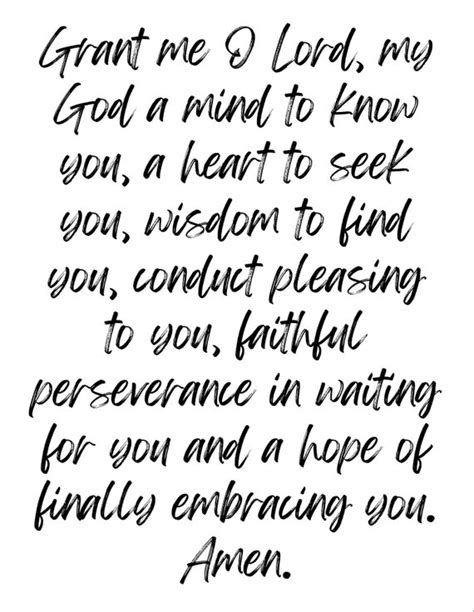 Grant me O Lord, my
God a mind to know
you, a heart to seek
you, wisdom to find
you, conduct pleasing
to you, faithful
perseverance in waiting
for you and a hope of
finally embracing you.
Amen.